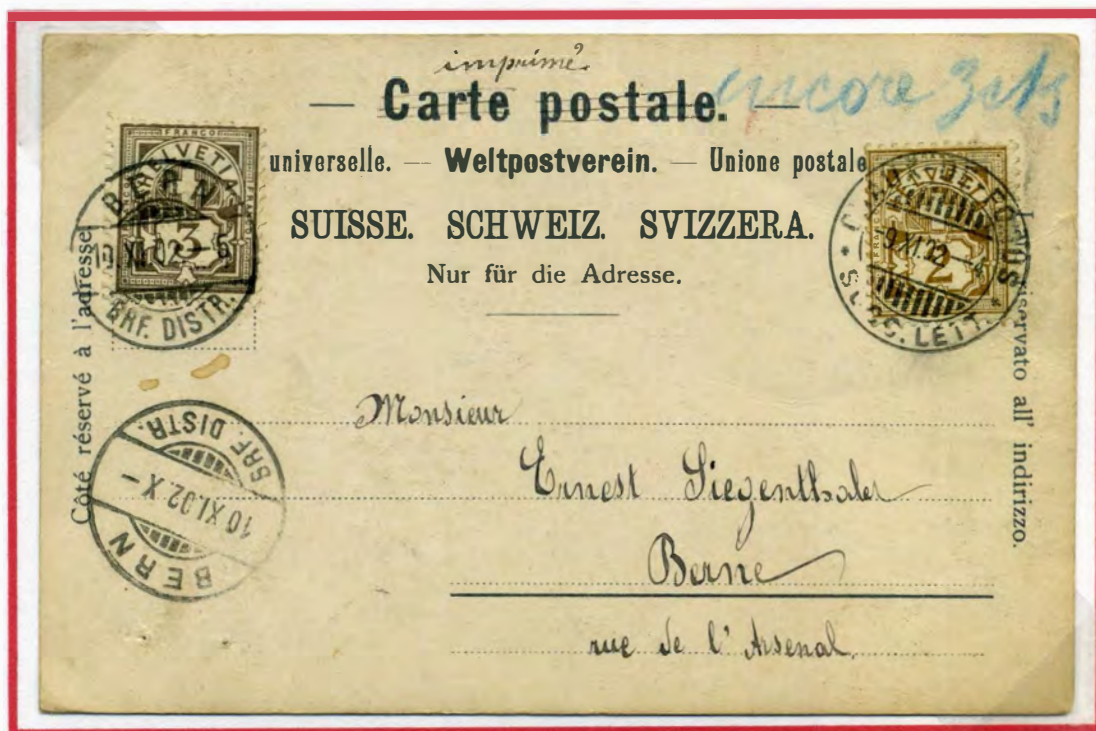 imprimé.
— Carte postale. —
encore 3 cts
universelle. — Weltpostverein. — Unione postale
SUISSE. SCHWEIZ. SVIZZERA.
Nur für die Adresse.
Côté réservé à l'adresse
riservato all' indirizzo.
FRANCO
HELVETIA
3
BERN
XI.02
BRF. DISTR.
2
9.XI.02
LETT.
BERN
10 XI.02.X–
BRF DISTR.
Monsieur
Ernest Siegenthaler
Berne
rue de l'Arsenal.